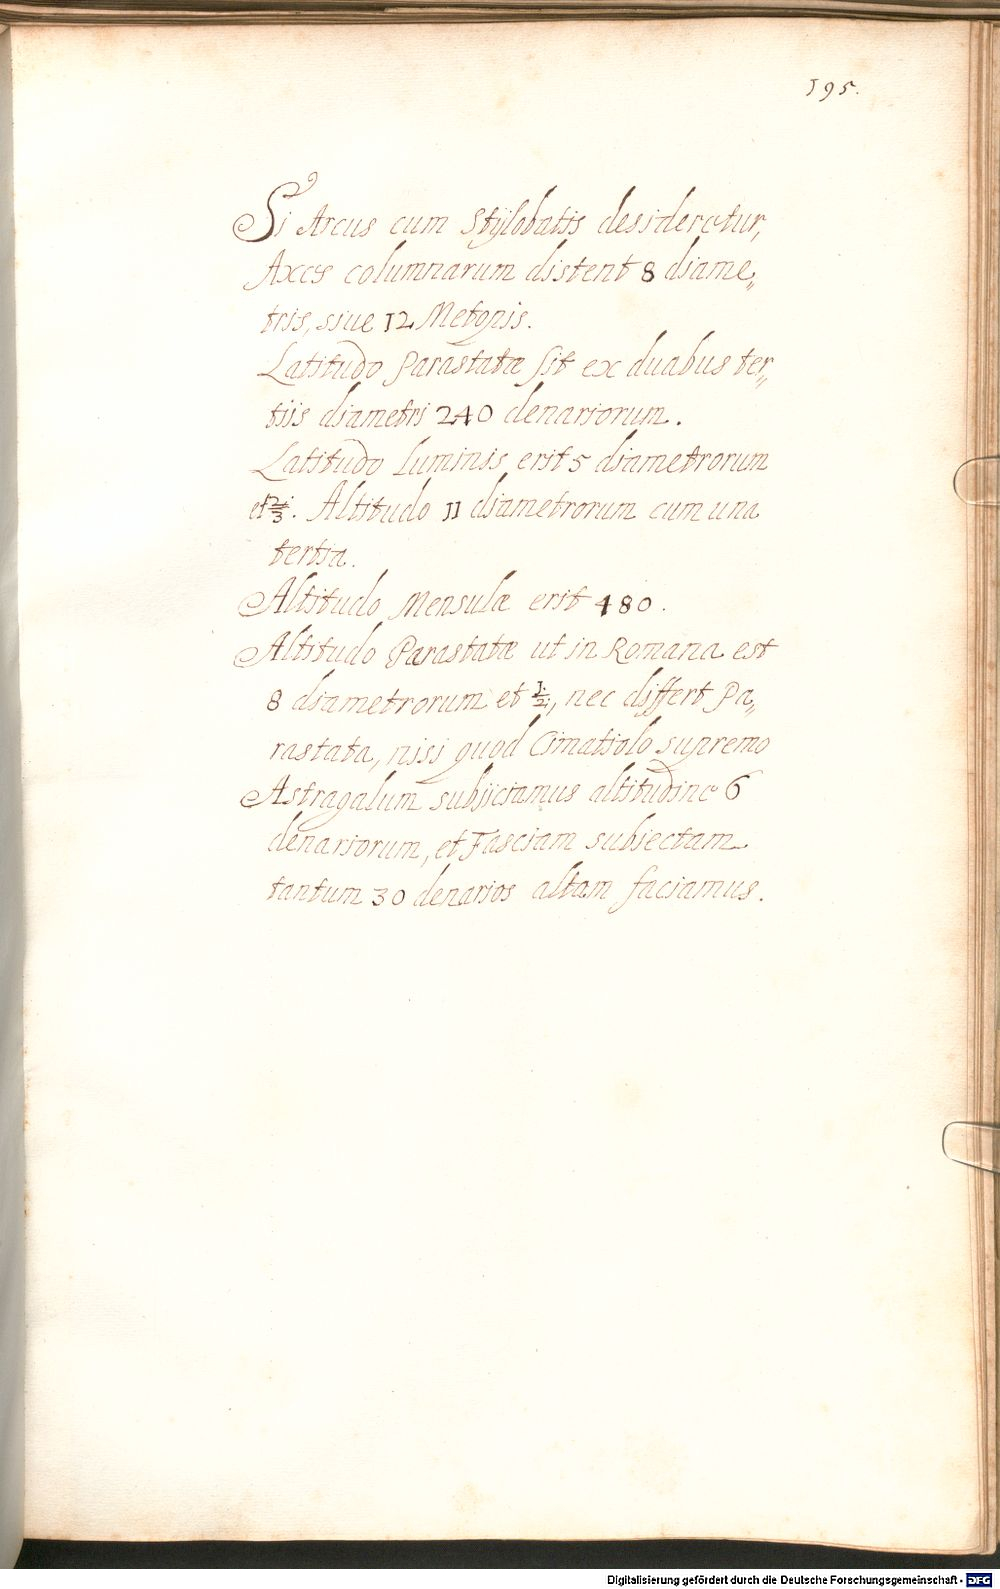 195.
Si Arcus cum Stÿlobatis desideretur,
Axes columnarum distent 8 diame„
tris, siue 12 Metopis.
Latitudo Parastatæ sit ex duabus ter„
tiis diametri 240 denariorum.
Latitudo Luminis erit 5 diametrorum
et 2/3. Altitudo 11 diametrorum cum una
tertia.
Altitudo Mensulæ erit 480.
Altitudo Parastatæ ut in Romana est
8 diametrorum et 1/2, nec differt Pa„
rastata, nisi quod Cimatiolo supremo
Astragalum subjiciamus altitudine 6
denariorum, et Fasciam subiectam
tantum 30 denarios altam faciamus.
Digitalisierung gefördert durch die Deutsche Forschungsgemeinschaft - DFG